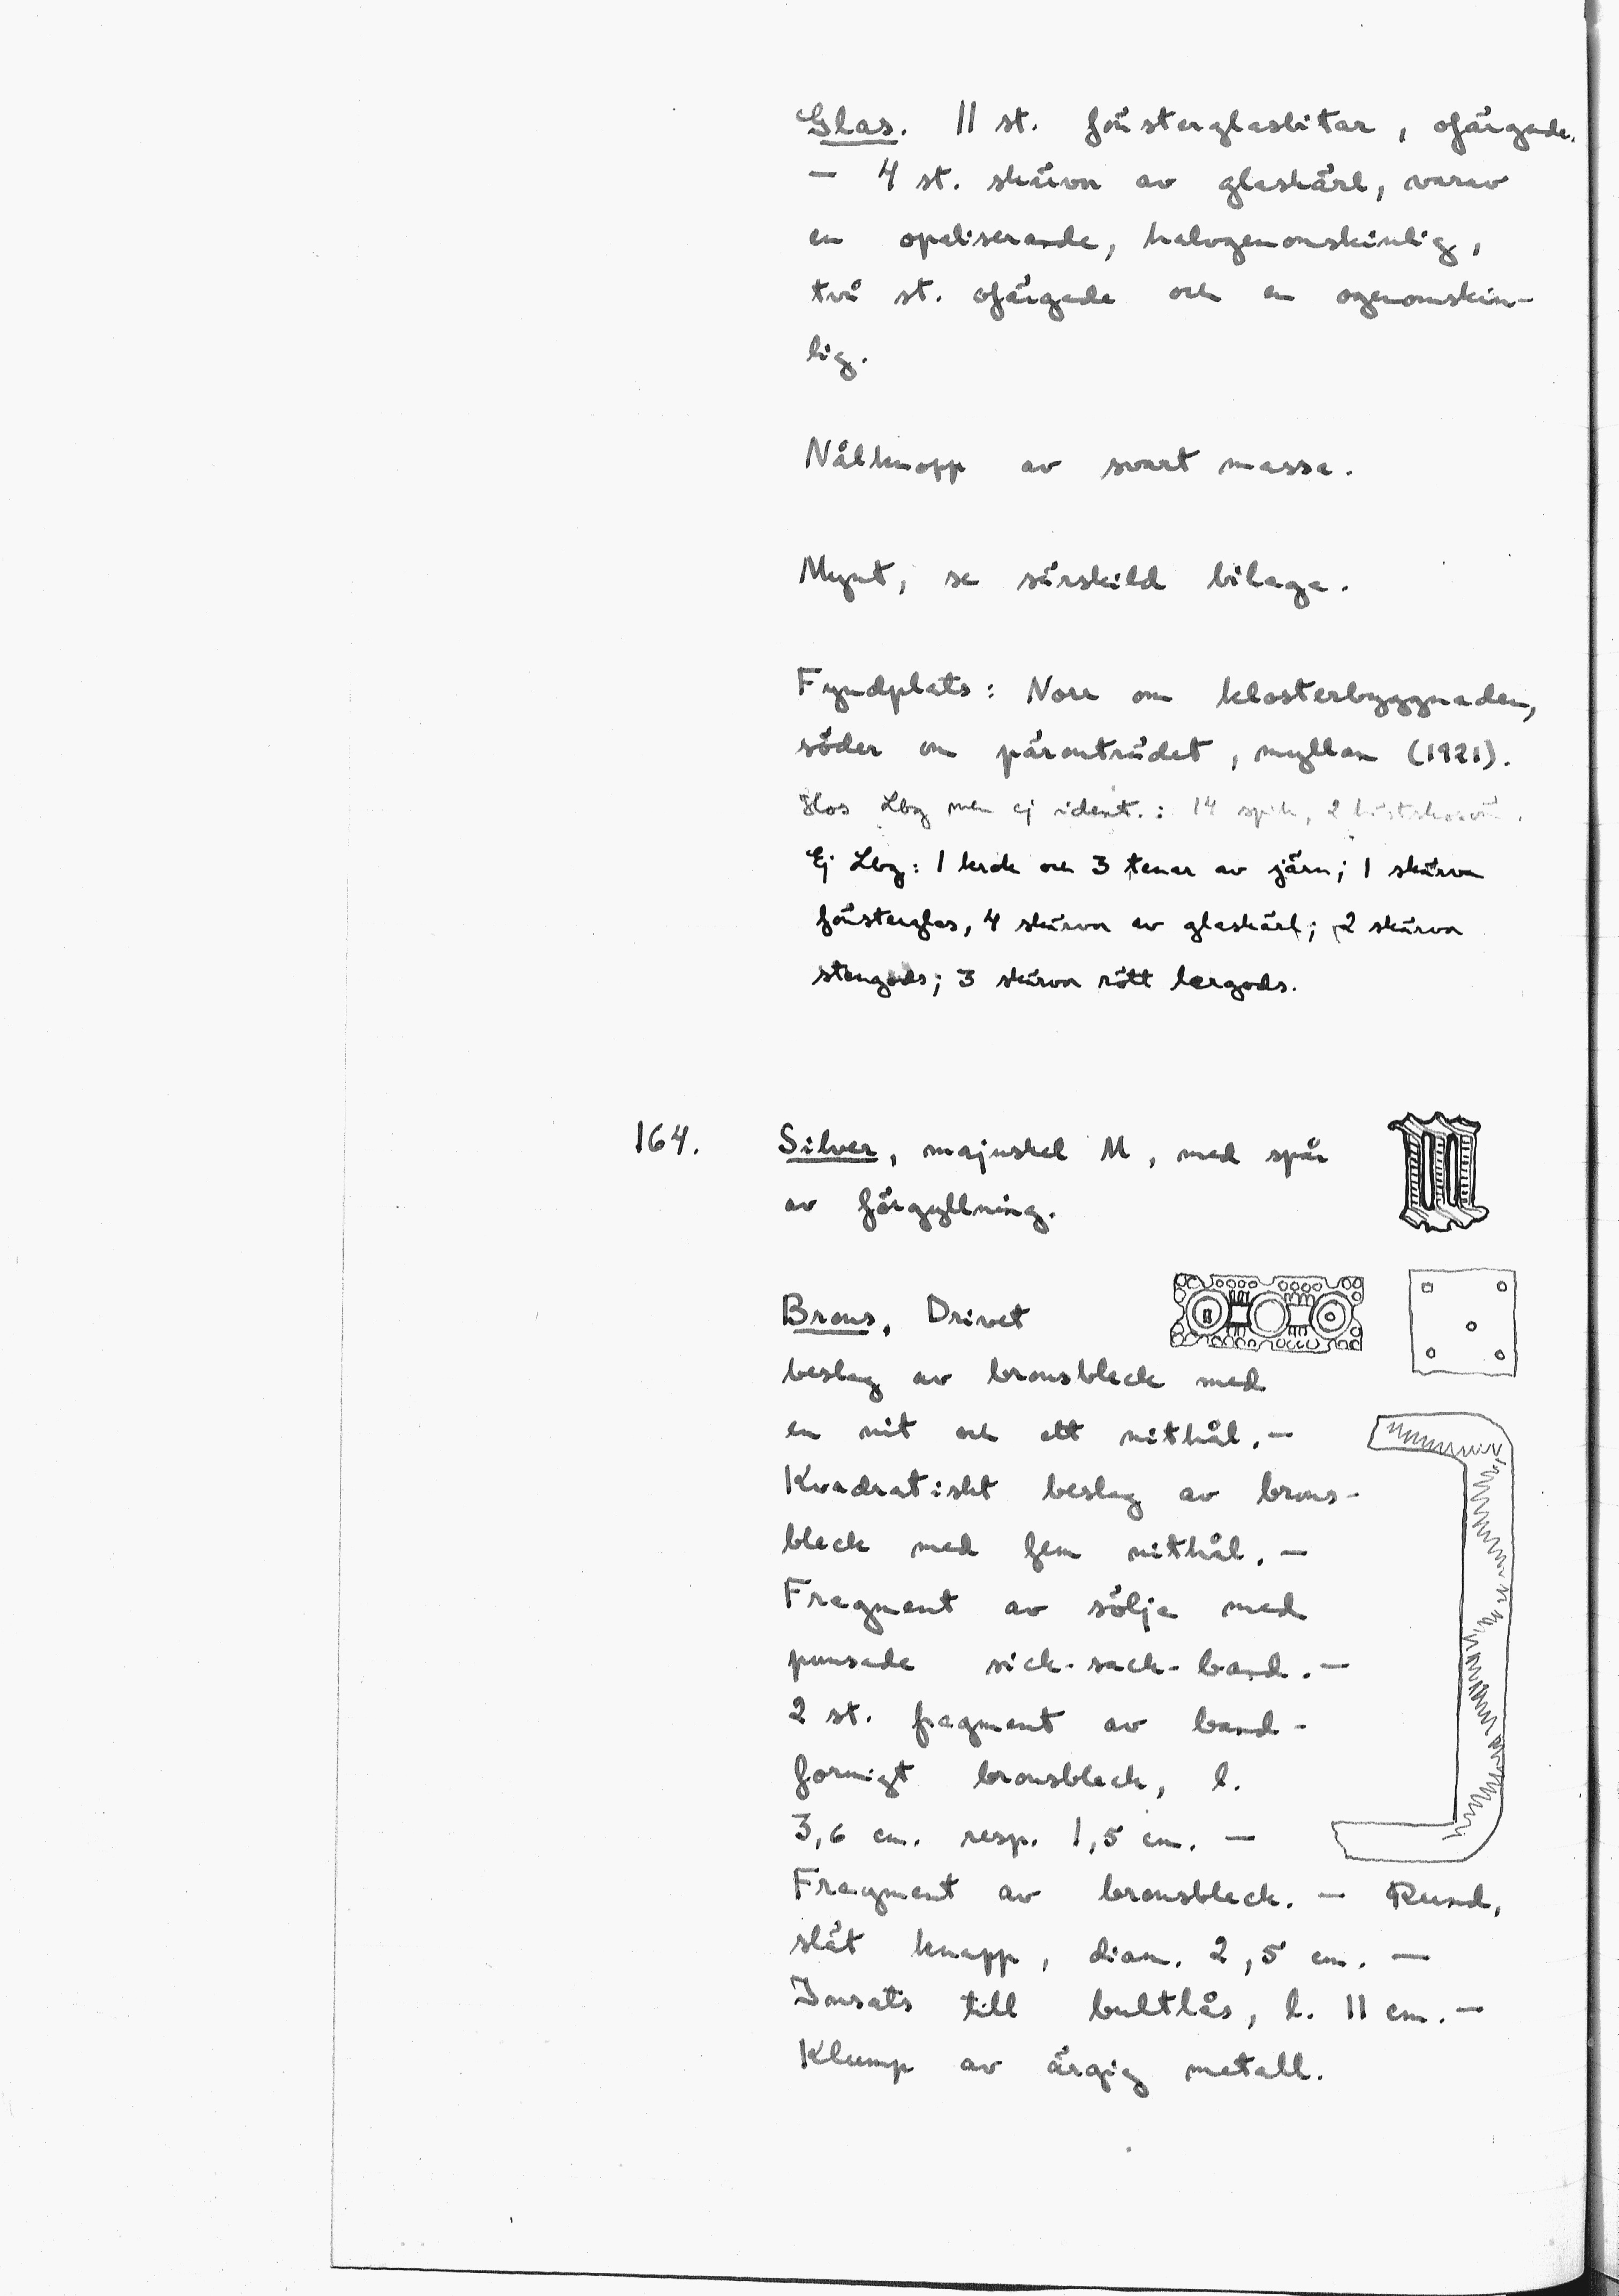 Glas. 11 st. fönsterglasbitar, ofärgade.
— 4 st. skärvor av glaskärl, varav
en opaliserande, halvgenomskinlig,
två st. ofärgade och en ogenomskin-
lig.
Nålknopp av svart massa.
Mynt, se särskild bilaga.
Fyndplats: Norr om klosterbyggnaden,
söder om päronträdet, myllan (1921).
Hos Lbg men ej ident.: 14 spik, 2 hästskosöm.
Ej Lbg: 1 krok och 3 tenar av järn; 1 skärva
fönsterglas, 4 skärvor av glaskärl; 2 skärvor
stengods; 3 skärvor rött lergods.
164. Silver, majuskel M, med spår
av förgyllning.
Brons. Drivet
beslag av bronsbleck med
en nit och ett nithål. —
Kvadratiskt beslag av brons-
bleck med fem nithål. —
Fragment av sölja med
punsade sick-sack-band. —
2 st. fragment av band-
formigt bronsbleck, l.
3,6 cm. resp. 1,5 cm. —
Fragment av bronsbleck. — Rund,
slät knapp, diam. 2,5 cm. —
Insats till bultlås, l. 11 cm. —
Klump av ärgig metall.